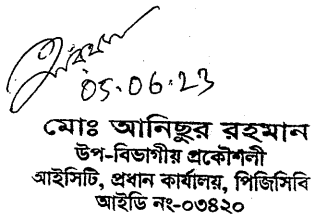 05.06.23
মোঃ আনিছুর রহমান
উপ-বিভাগীয় প্রকৌশলী
আইসিটি, প্রধান কার্যালয়, পিজিসিবি
আইডি নং-০৩৪২০